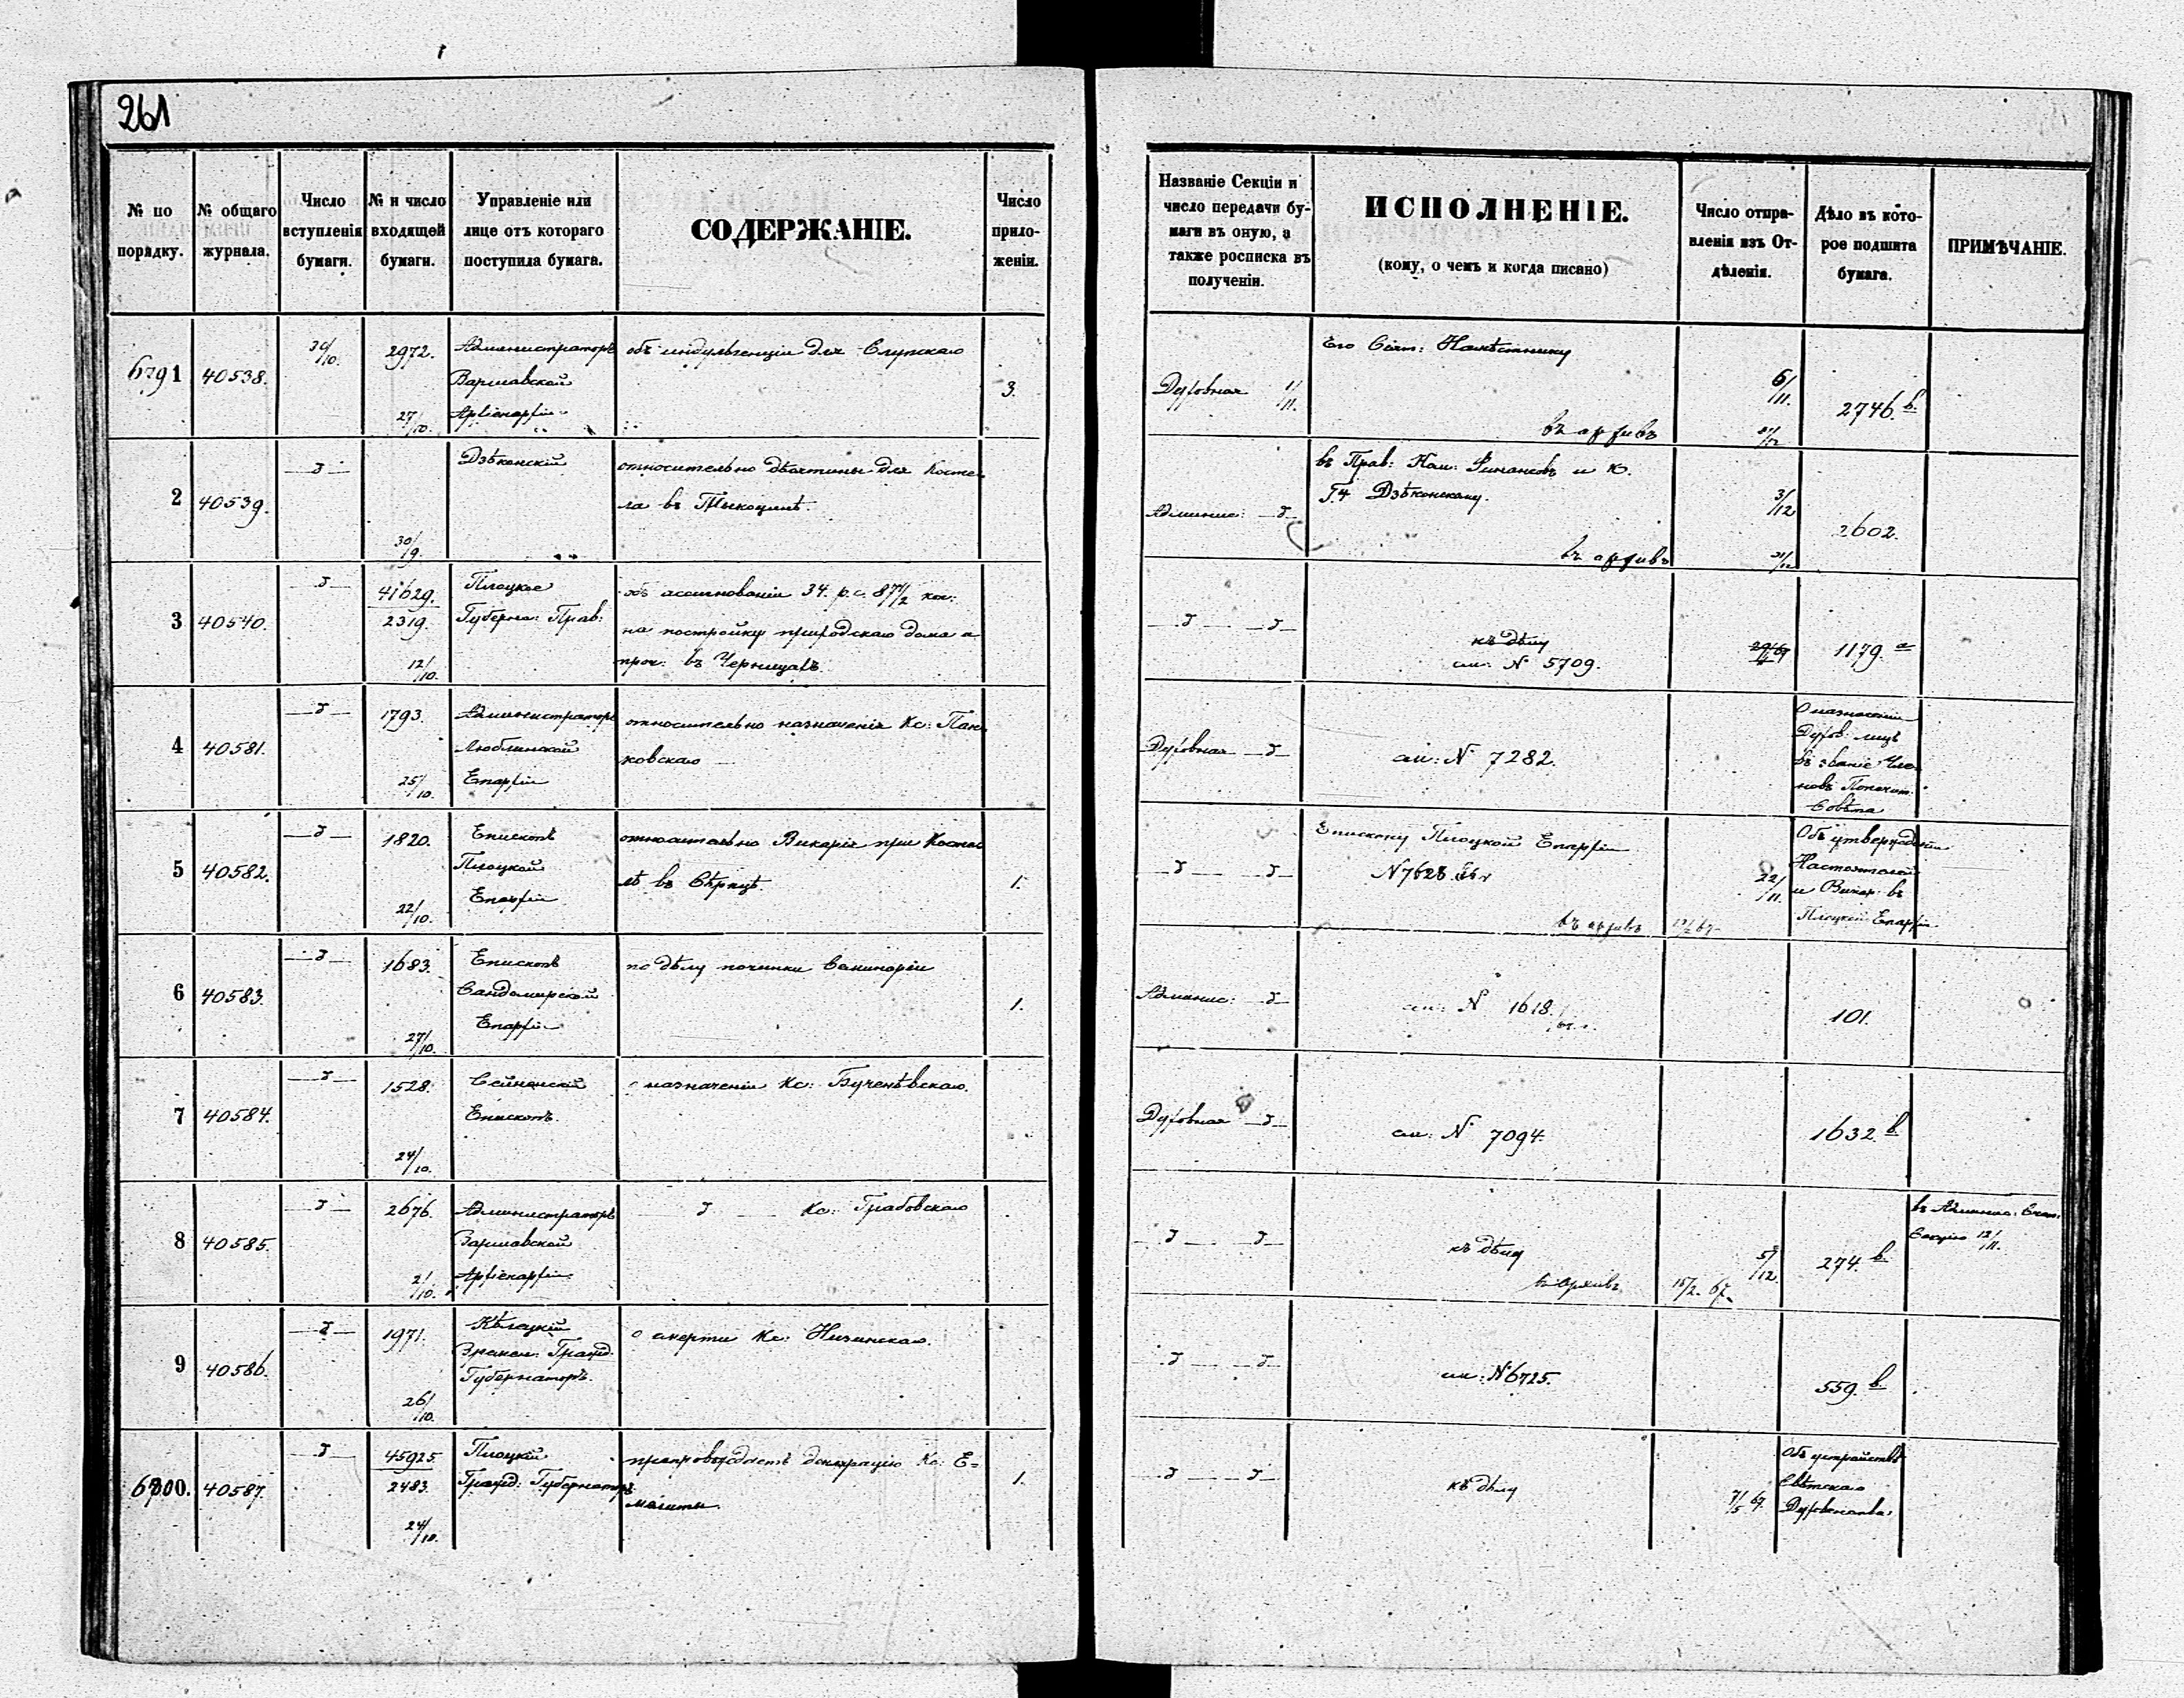 261
№ по порядку.
№ общаго журнала.
Число вступленія бумаги.
№ и число входящей бумаги.
Управленіе или лице отъ котораго поступила бумага.
СОДЕРЖАНІЕ.
Число приложеніи.
Названіе Секціи и число передачи бумаги въ оную, а также росписка въ полученіи.
ИСПОЛНЕНІЕ.
(кому, о чемъ и когда писано)
Число отправленія изъ Отдѣленія.
Дѣло въ которое подшита бумага.
ПРИМѢЧАНІЕ.
6791
40538.
30/10.
2972.
27/10.
Администраторъ
Варшавской
Архіепархіи
объ индульгенціи для Слупскаго
3.
Духовная 1/11.
Его Сіят: Намѣстнику
въ архивъ
6/11.
2746. в.
2
40539.
30/9.
Дзѣконскій
относительно десятины для Косте-
ла въ Тыкоцинѣ.
Админис:
въ Прав: Ком: Финансовъ и Ю.
Дзѣконскому.
въ архивъ
3/12
2602.
3
40540.
41629.
2319.
12/10.
Плоцкое
Губерн: Прав:
объ ассигнованіи 34. р.с. 87 1/2 коп:
на постройку приходскаго дома и
проч: въ Черницахъ.
къ дѣлу
см: № 5709.
1179. а
4
40581.
1793.
25/10.
Администраторъ
Люблинской
Епархіи
относительно назначенія Кс: Пан-
ковскаго
Духовная
см: № 7282.
О назначеніи
Духов: лицъ
въ званіе Чле-
новъ Попечит:
Совѣта
5
40582.
1820.
22/10.
Епископъ
Плоцкой
Епархіи
относительно Викарія при Косте-
лѣ въ Сѣрпцѣ.
1.
Епископу Плоцкой Епархіи
№ 7628.
въ архивъ
22/11.
Объ утвержденіи
Настоятелей
и Викар: въ
Плоцкой Епархіи
6
40583.
1683.
27/10.
Епископъ
Сандомирской
Епархіи
по дѣлу починки Семинаріи
1.
Админис:
см: № 1618.
101.
7
40584.
1528.
24/10.
Сейненскій
Епископъ.
о назначеніи Кс: Бученѣвскаго.
Духовная
см: № 7094.
1632. в.
8
40585.
2676.
2/10.
Администраторъ
Варшавской
Архіепархіи.
Кс: Грабовскаго
къ дѣлу
въ Архивъ
15/2 67.
5/12.
274. в.
въ Админис:
Секцію 12/11.
9
40586.
1971.
26/10.
Кѣлецкій
Гражд:
Губернаторъ.
о смерти Кс: Ничинскаго.
см: № 6725.
559. в.
6800.
40587.
45925.
2483.
24/10.
Плоцкій
Гражд: Губернаторъ
препровождаетъ декларацію Кс: Е-
1.
къ дѣлу
7/5 67.
Объ устройствѣ
Свѣтскаго
Духовенства.